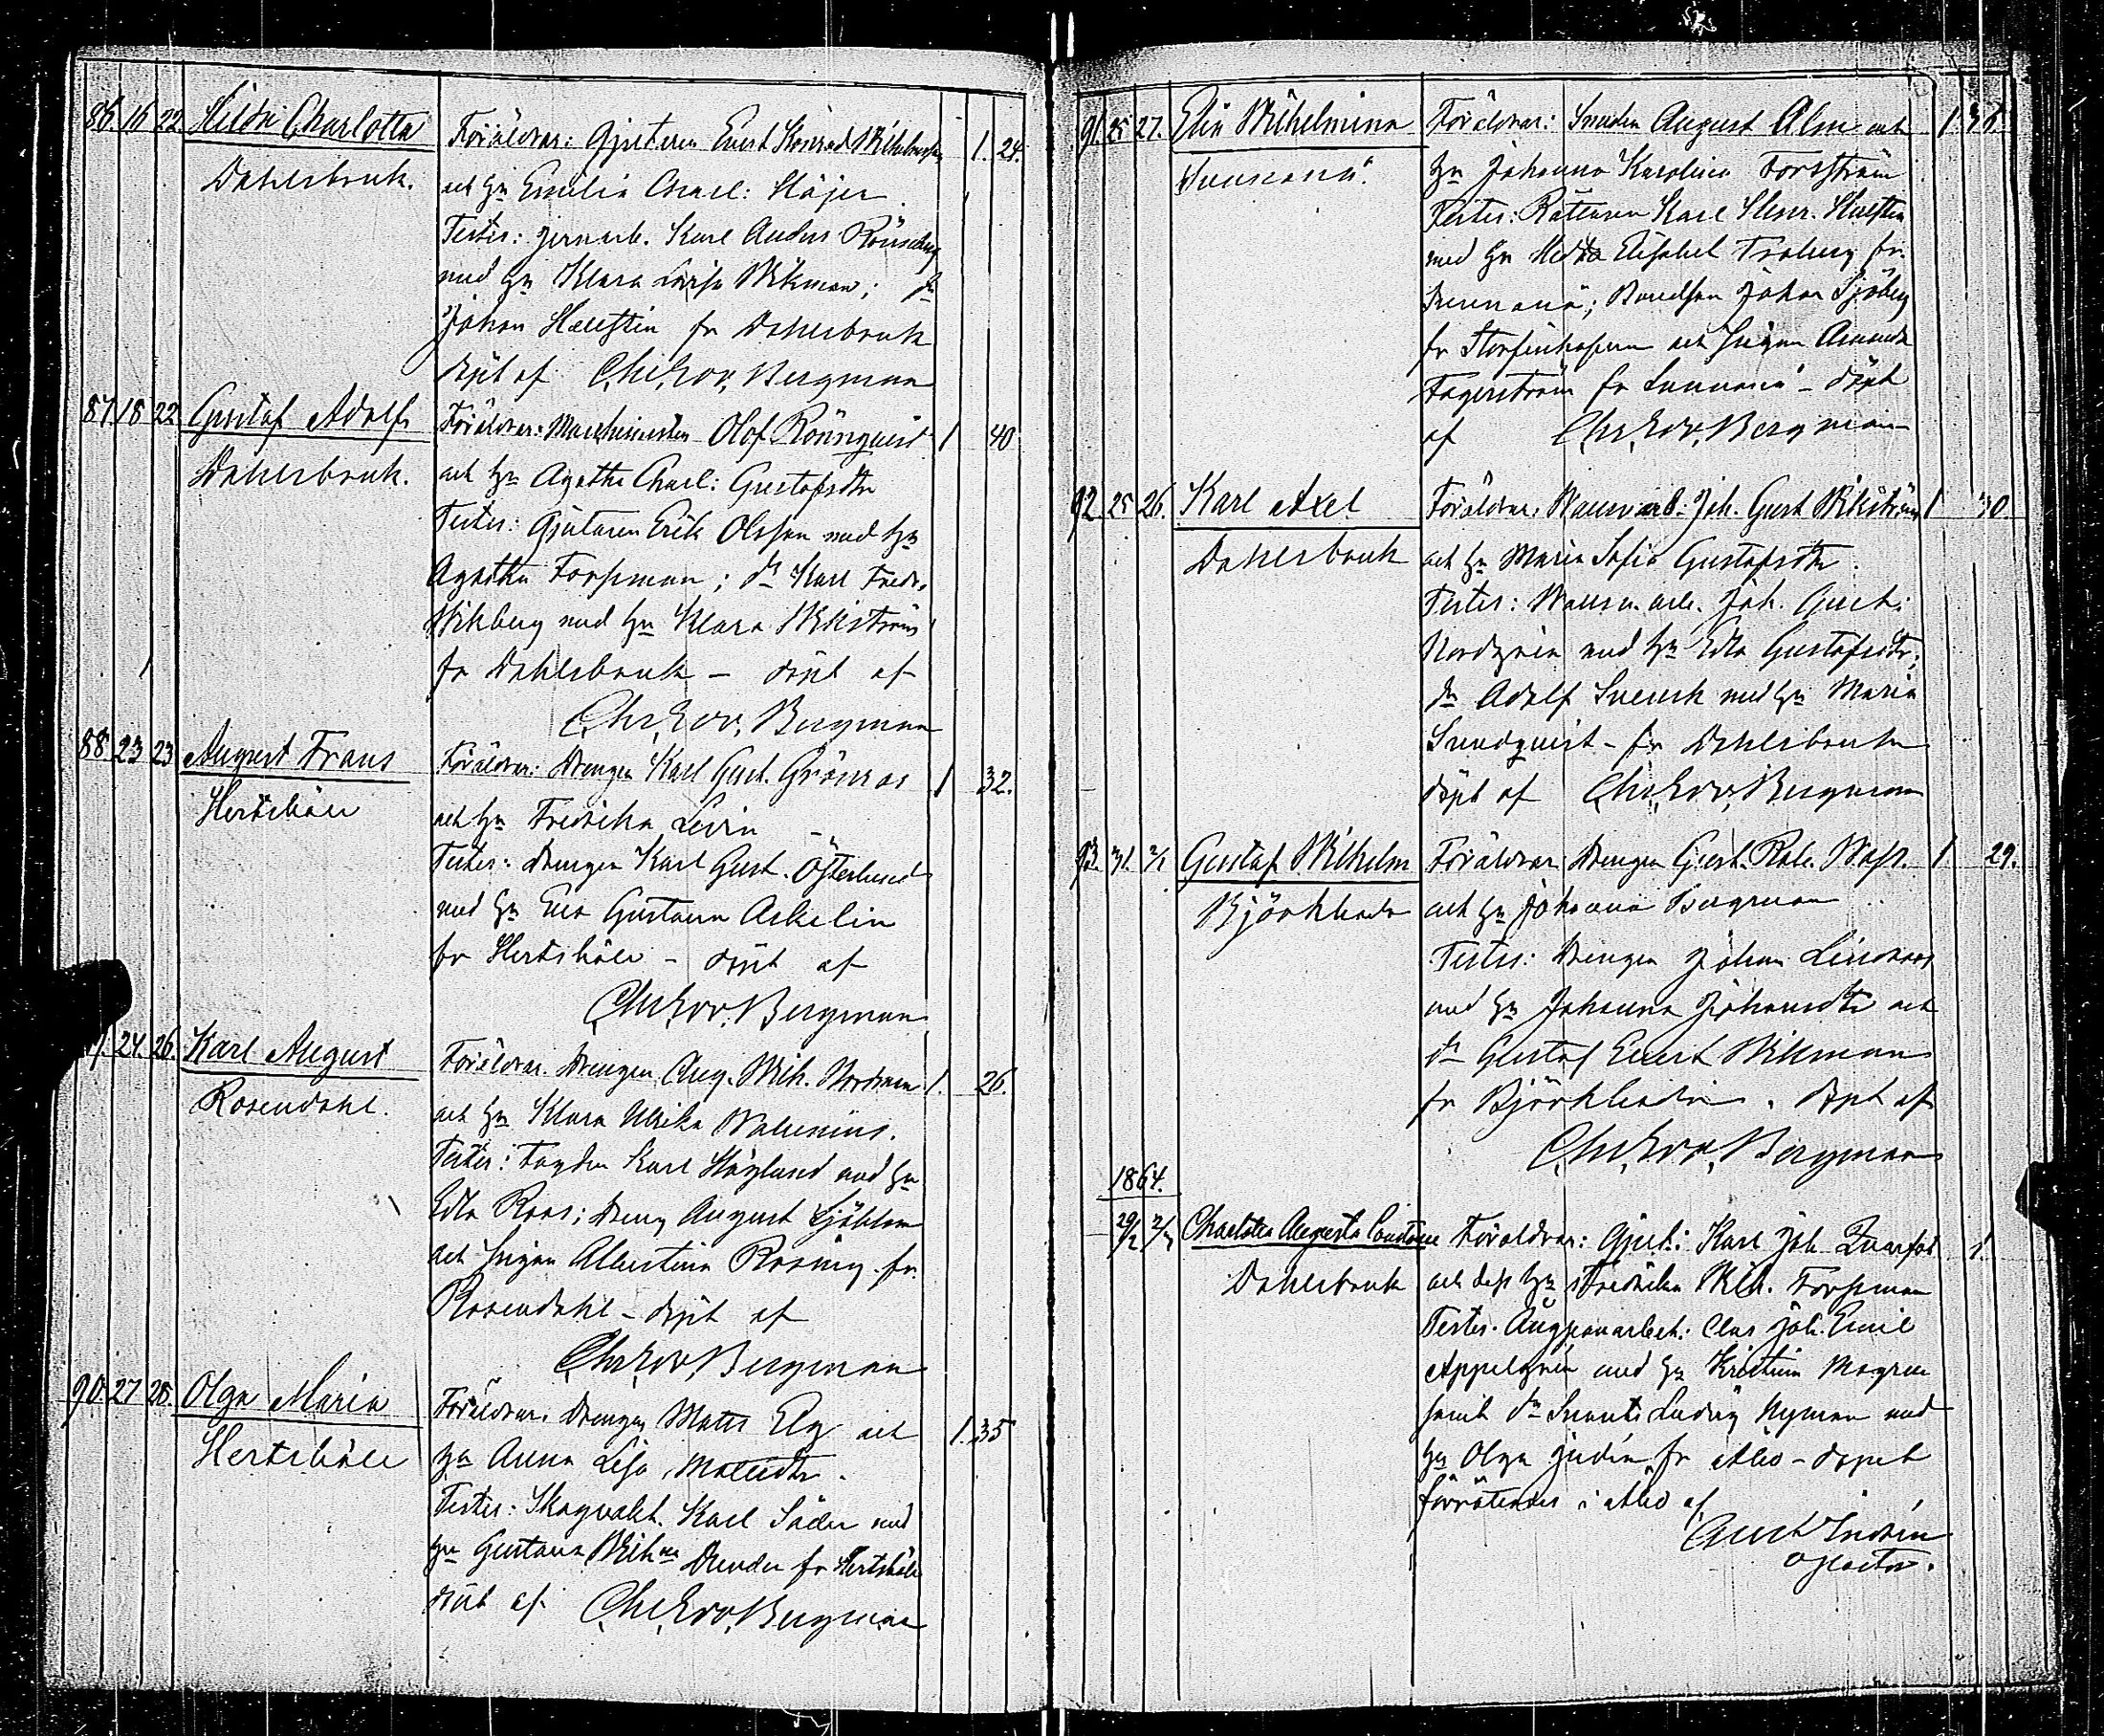 86 16 22 Hilda Charlotta
Dahlsbruk.
Föräldrar: Gjutaren Evert Konrad Wilhelmsson 1. 24.
och hu Emilia Charl: Höjer.
Testes: jernarb. Karl Anders Rönnberg
med hu Klara Lovisa Wikman; dn
Johan Hellstén fr Dahlsbruk
döpt af Chr. Edv. Bergman
87 18 22 Gustaf Adolf
Dahlsbruk.
Föräldrar: Machinisten Olof Rönnquist 1 40
och hu Agatha Charl: Gustafsdtr
Testes: Gjutaren Erik Olsson med hu
Agatha Forssman; dn Karl Fredr.
Wikberg med hu Klara Wikström
fr Dahlsbruk – döpt af
Chr. Edv. Bergman
88 23 23 August Frans
Hertsböle
Föräldrar: Drengen Karl Gust. Grönroos 1 32.
och hu Fredrika Levin
Testes: Drengen Karl Gust. Österlund
med hu Eva Gustava Askelin
fr Hertsböle – döpt af
Chr. Edv. Bergman
24. 26. Karl August
Rosendahl.
Föräldrar. Drengen Aug. Wilh. Nordman 1. 26.
och hu Klara Ulrika Wallenius.
Testes: Fogden Karl Höglund med hu
Edla Roos; Dreng August Sjöblom
och pigan Albertina Rosing fr.
Rosendahl – döpt af
Chr. Edv. Bergman
90. 27 28. Olga Maria
Hertsböle
Föräldrar. Drengen Matts Elg och 1. 35
hu Anna Lisa Mattsdtr.
Testes: Skogvakt. Karl Söder med
hu Gustava Wilhna fr Hertsböle
döpt af Chr. Edv. Bergman
91. 25 27. Elin Wilhelmina
Sunnanå.
Föräldrar: Smeden August Alm och 1
hu Johanna Karolina Forsström
Testes: Karl Henr. Hellsten
med hu Hedda Elisabet Troberg fr.
Sunnanå; Bondeson Johan Sjöberg
fr och pigan Amanda
Fagerström fr Sunnanå – döpt
af Chr. Edv. Bergman
92. 25 26. Karl Axel
Dahlsbruk
Föräldrar. Walsv.arb. Joh. Gust Wikström 1 30.
och hu Maria Sofia Gustafsdtr.
Testes: Walsv. arb. Joh. Gust:
Nordgrén med hu Edla Gustafsdtr;
dn Adolf Svensk med hu Maria
Sundquist – fr Dahlsbruk
döpt af Chr. Edv. Bergman
93. 31. 2/1 Gustaf Wilhelm
Björkboda
Föräldrar Drengen Gust. Rob. Wass. 1. 29.
och hu Johanna Bergman
Testes: Drengen Johan Lindroos
med hu Johanna Johansdtr och
dn Gustaf Evert Wikman
fr Björkboda. döpt af
Chr. Edv. Bergman
1864.
29/2 Charlotta Augusta Constance
Dahlsbruk
Föräldrar: Gjut: Karl Joh. Qvarfot 1.
och dess hu Fredrika Wilh. Forssman
Testes. Ångpanarbet: Clas Joh. Emil
Appelgrén med hu Kristina Magren
samt dn Svante Ludvig Nyman med
hu Olga Judén fr Åbo – döpet
förrättades i Åbo af